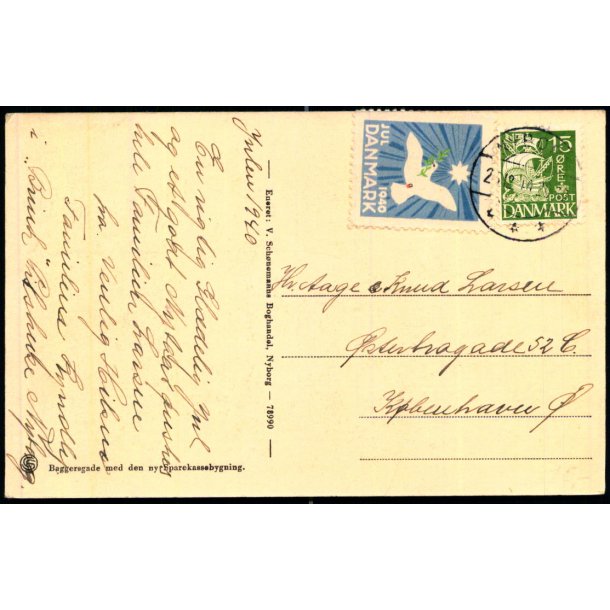 Julen 1940
En rigtig Glædelig Jul
og et godt Nytaar ønskes
hele Familien Larsen
fra Venlig Hilsen
Familien
i "Brink" Nyborg
Eneret: V. Schønemanns Boghandel, Nyborg — 78990
JUL
DANMARK
1940
15
ØRE
POST
DANMARK
Hr. Aage & Knud Larsen
Østerbrogade 52 C.
København Ø
Baggersgade med den ny Sparekassebygning.